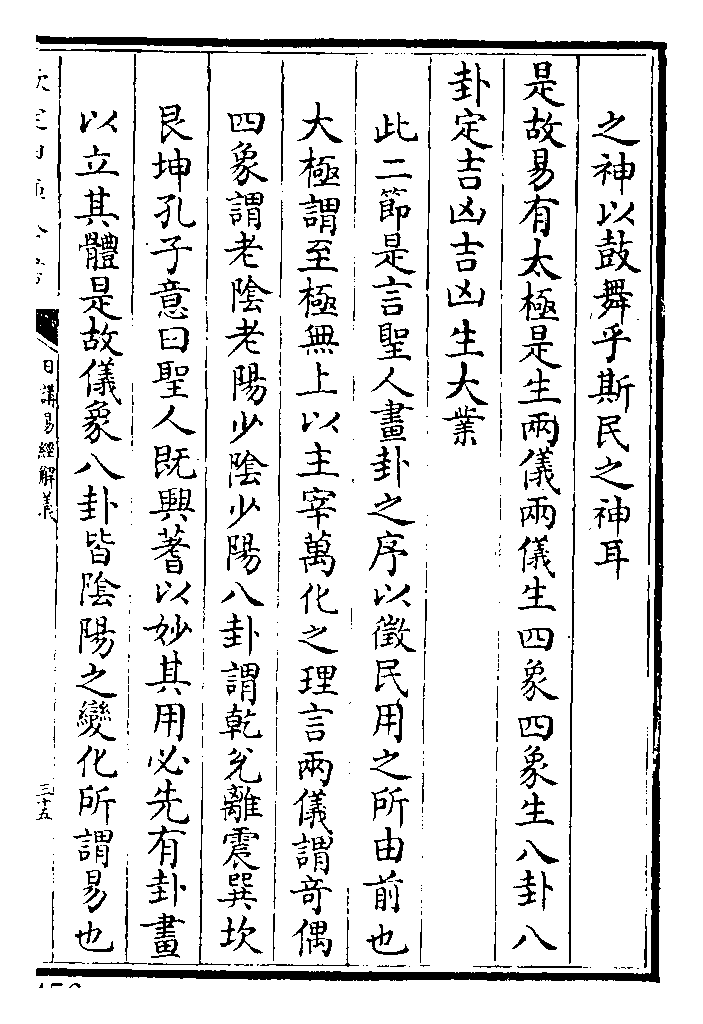 之神以鼓舞乎斯民之神耳
是故易有太極是生兩儀兩儀生四象四象生八卦八
卦定吉凶吉凶生大業
此二節是言聖人畫卦之序以徵民用之所由前也
大極謂至極無上以主宰萬化之理言兩儀謂竒偶
四象謂老陰老陽少陰少陽八卦謂乾兊離震巽坎
艮坤孔子意曰聖人既興蓍以妙其用必先有卦畫
以立其體是故儀象八卦皆陰陽之變化所謂易也
日講易經解義
三十五